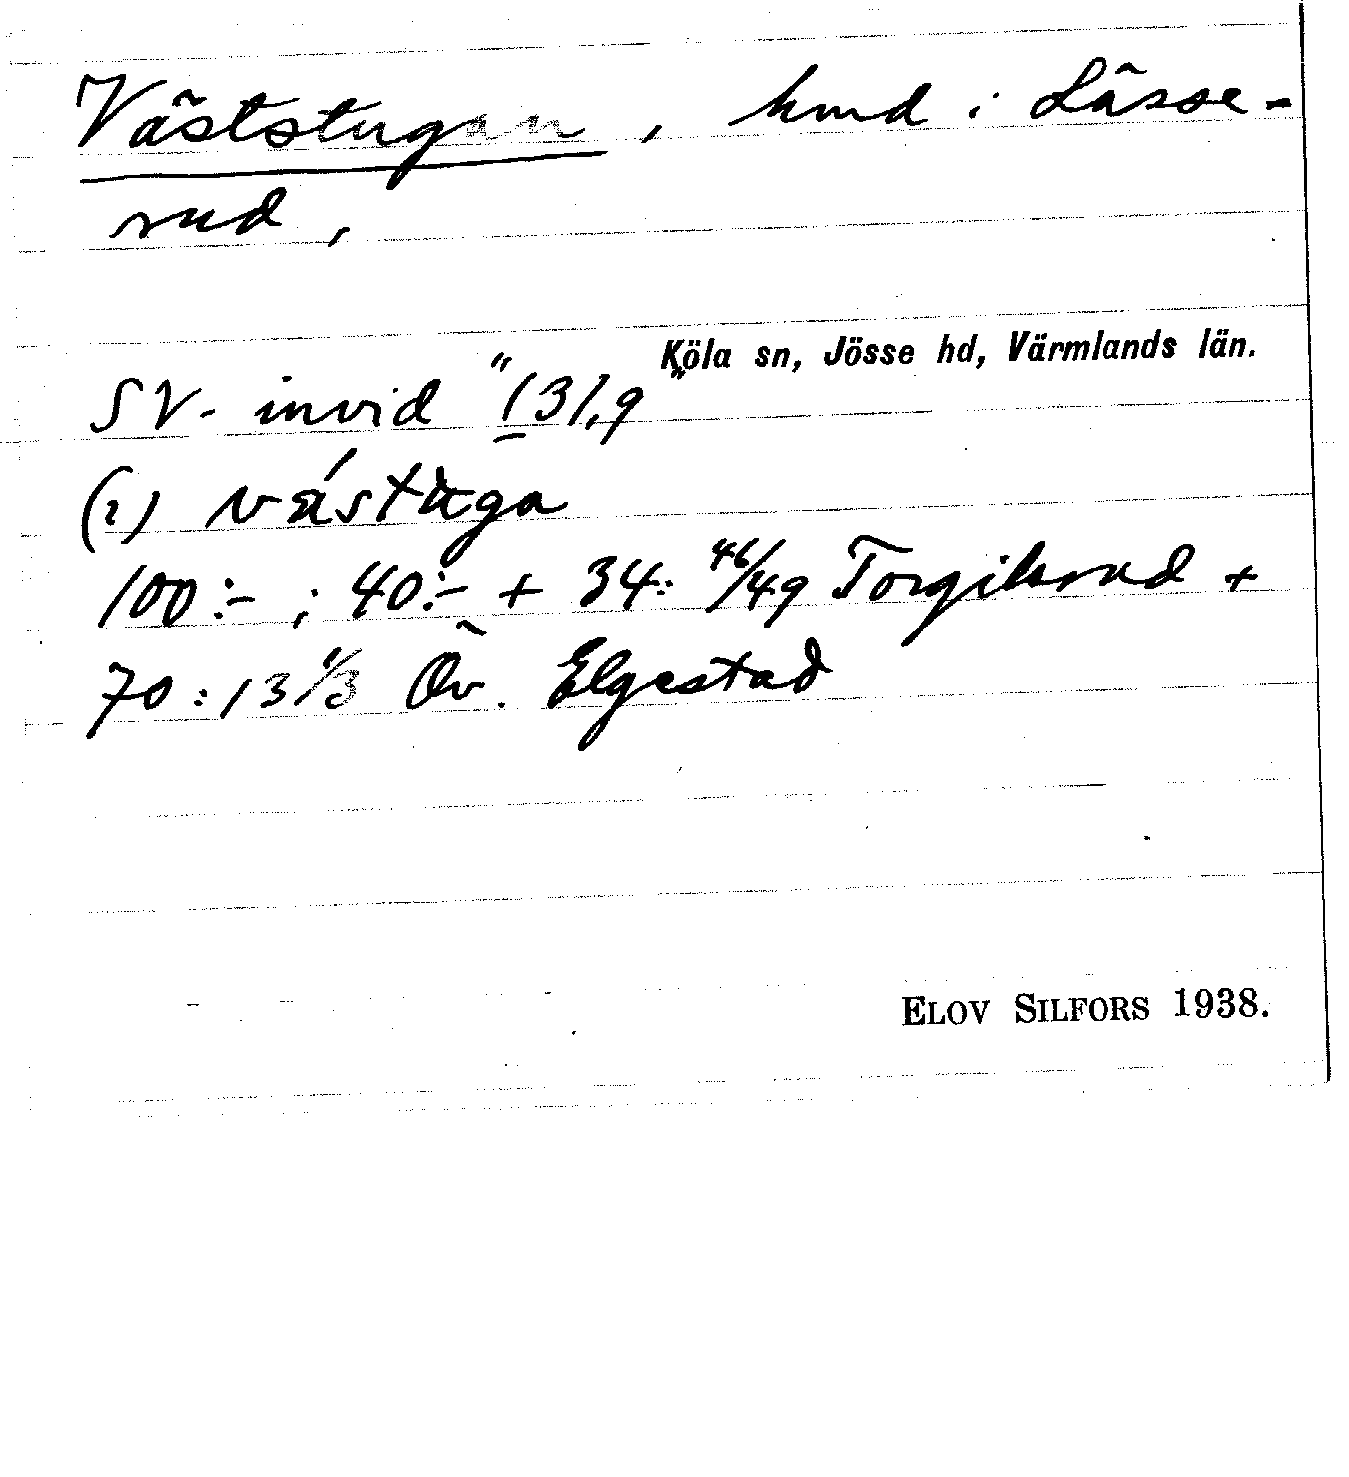 Väststugan, hmd i Lässe-
rud,
Köla sn, Jösse hd, Värmlands län.
SV. invid "(31,9"
(i) västuga
100:-; 40:- + 34: 46/49 Torgilsrud +
70:13 1/3 Öv. Elgestad
ELOV SILFORS 1938.